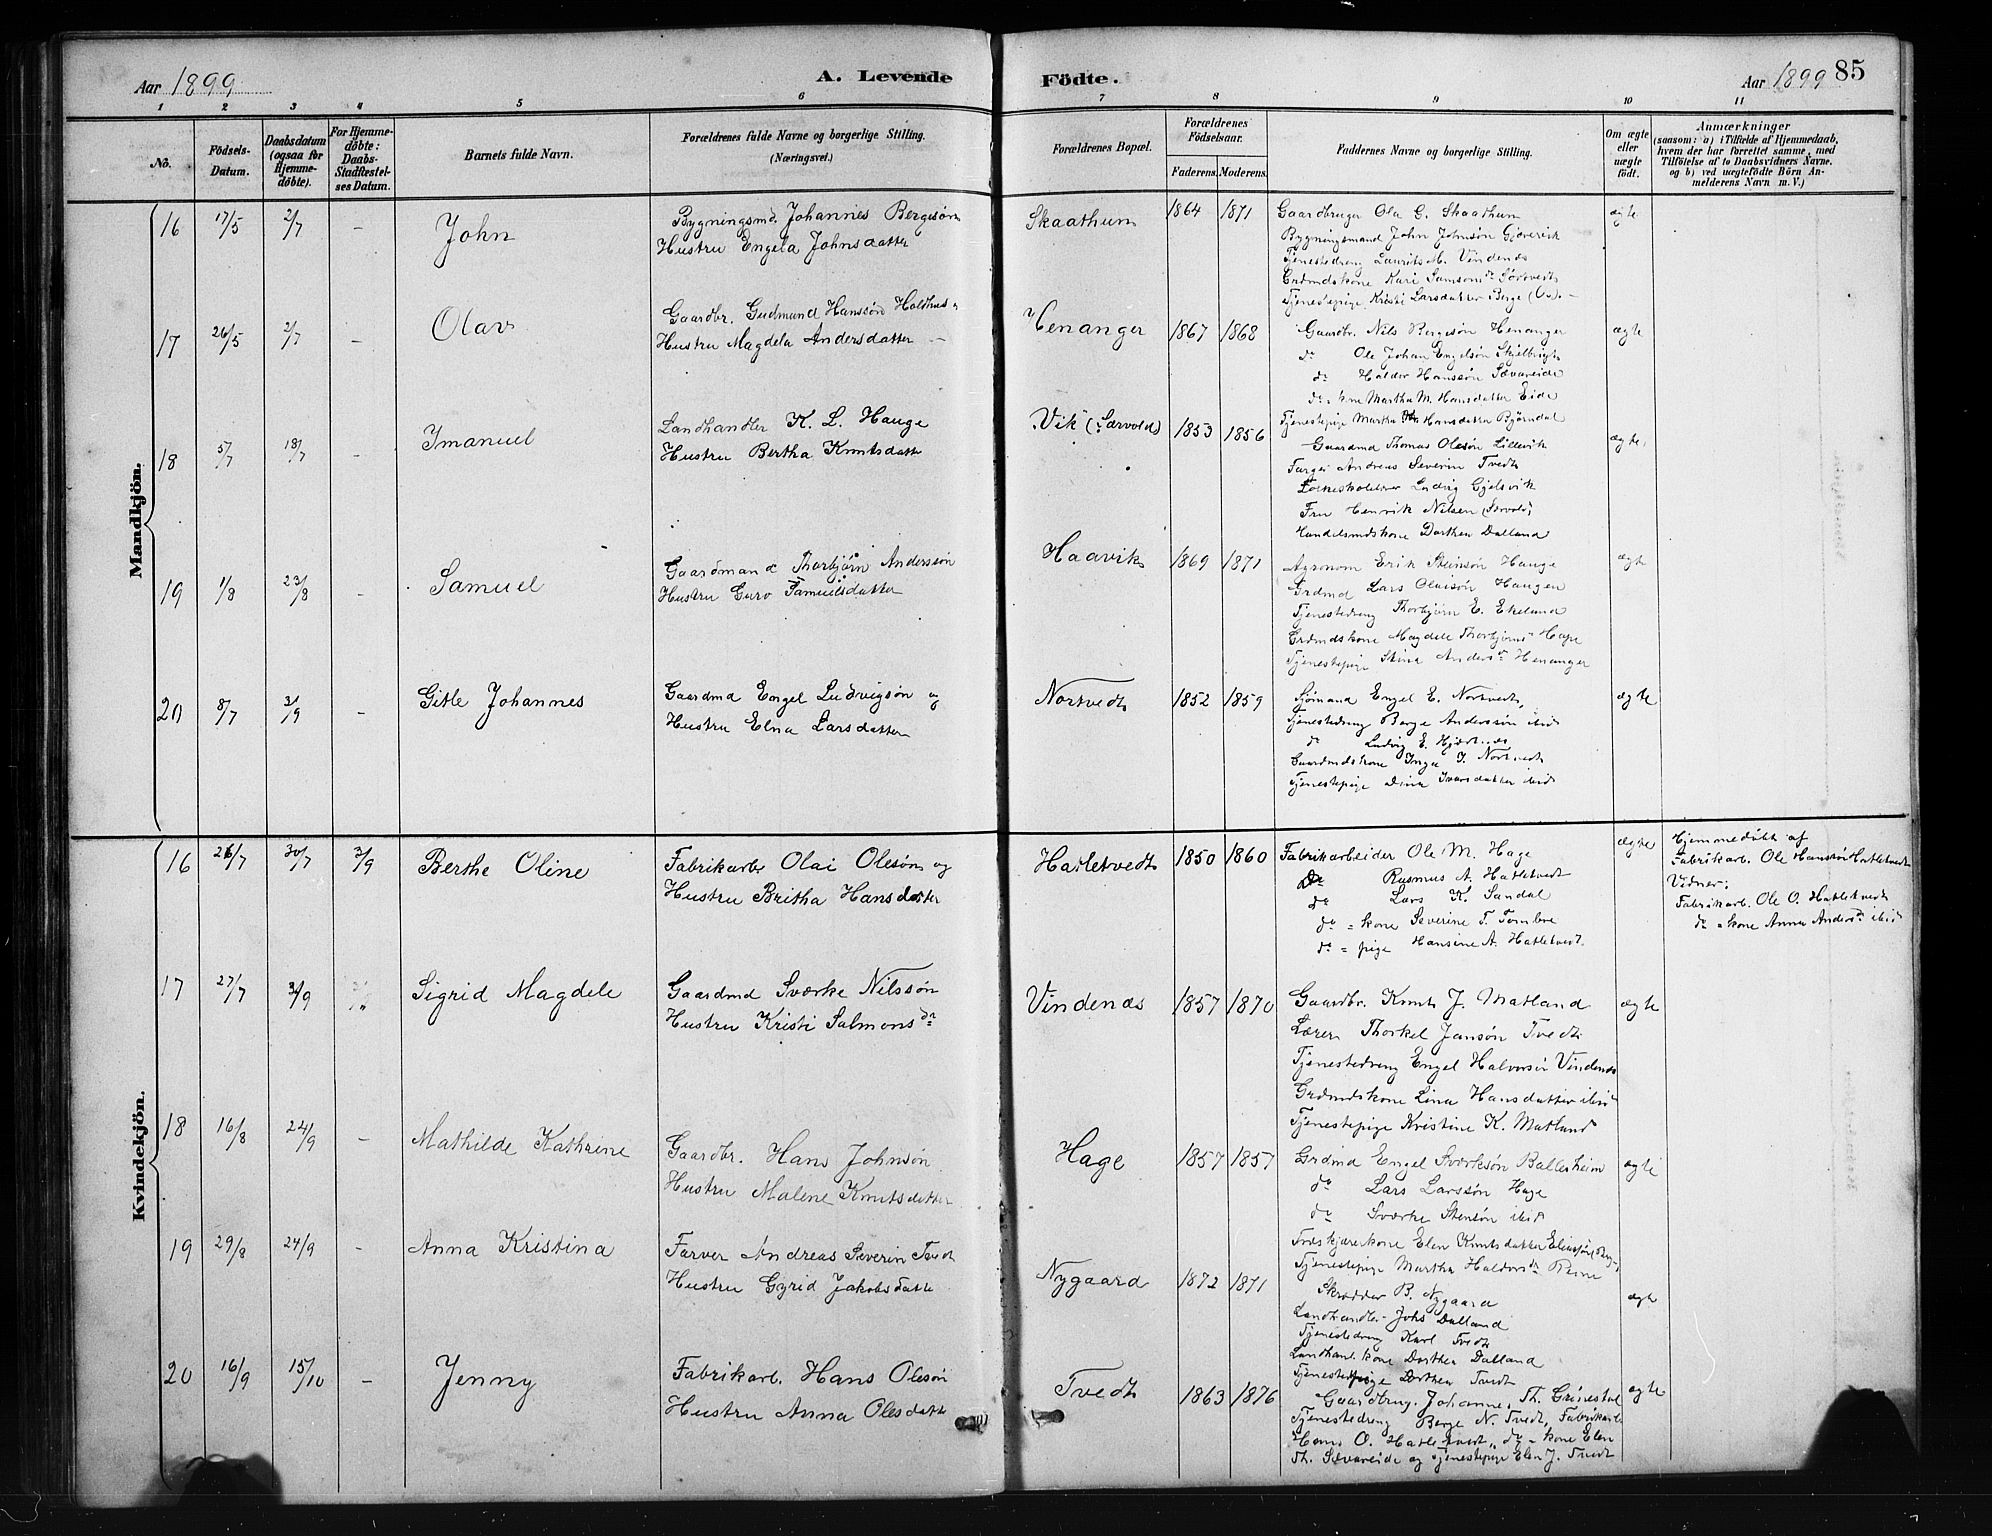 Aar 1899
A. Levende Födte.
Aar 1899 85
1 2 3 4 5 6 7 8 9 10 11
Nô.
Födsels-Datum.
Daabsdatum (ogsaa for Hjemme-döbte).
For Hjemme-döbte: Daabs-Stadfæstel-ses Datum.
Barnets fulde Navn.
Forældrenes fulde Navne og borgerlige Stilling.
(Næringsvei.)
Forældrenes Bopæl.
Forældrenes Födselsaar.
Faderens. Moderens.
Faddernes Navne og borgerlige Stilling.
Om ægte eller uægte födt.
Anmærkninger
(saasom: a) i Tilfælde af Hjemmedaab, hvem der har forrettet samme, med Tilföielse af to Daabsvidners Navne. og b) ved uægtefödte Börn An-melderens Navn m. V.)
Mandkjön.
16 17/5 2/7 - John
Bygningsmd. Johannes Bergesön
Hustru Engela Johnsdatter
Skaathum 1864 1871
Gaardbruger Ola G. Skaathum
Bygningsmand John Johnsön Gjövevik
Tjenestedreng Laurits M. Vindenæs
Grdmdskone Kari Samsonsdr Sörtvedt
Tjenestepige Kristi Larsdatter Berge
ægte
17 26/5 2/7 - Olav
Gaardbr. Gudmund Hanssön Holdhus
Hustru Magdela Andersdatter
Henanger 1867 1868
Gaardbr. Nils Bergesön Henanger
do Ole Johan Engelsön Skjelbrigt
do Haldor Hanssön Sævareide
do = kne Martha M. Hansdatter Eide
Tjenestepige Martha Hansdatter Björndal
ægte
18 5/7 18/7 - Imanuel
Landhandler K. L. Hauge
Hustru Bertha Knutsdatter
Vik (Særvold) 1853 1856
Gaardmd Thomas Olesön Lillevik
Farger Andreas Severin Tvedt
Ludvig Gjelsvik
Fru Henrik Nilsen
Handelsmdskone Dorthea Dalland
ægte
19 1/8 23/8 - Samuel
Gaardmand Thorbjörn Anderssön
Hustru Guro Samuelsdatter
Haavik 1869 1871
Agronom Erik Steinsön Hauge
Grdmd Lars Olaisön Haugen
Tjenestedreng Thorbjörn E. Ekeland
Grdmdskone Magdele Thorbjörnsdr Hage
Tjenestepige Stina Andersdr Henanger
ægte
20 8/7 3/9 - Gitle Johannes
Gaardmd Engel Ludvigsön og
Hustru Elna Larsdatter
Nortvedt 1852 1859
Sjömand Engel E. Nortvedt,
Tjenestedreng Berge Anderssön ibid
do Ludvig E.
Gaardmdskone Inga J. Nortvedt
Tjenestepige Dina Ivarsdatter ibid
ægte
Kvindekjön.
16 26/7 30/7 3/9 Berthe Oline
Fabrikarb. Olai Olesön og
Hustru Britha Hansdatter
Hatletvedt 1850 1860
Fabrikarbeider Ole M. Hage
do Rasmus A. Hatletvedt
do Lars K. Sandal
do = kone Severine T. Tombre
do = pige Hansine A. Hatletvedt.
ægte
Hjemmedöbt af
Fabrikarb. Ole Hanssön Hatletvedt
Vidner:
Fabrikarb. Ole O. Hatletvedt
do = kone Anna Andersdr ibid
17 27/7 3/9 Sigrid Magdele
Gaardmd Sværke Nilssön
Hustru Kristi Salmonsdr
Vindenæs 1857 1870
Gaardbr. Knut J. Matland
Lærer Thorkel Jansön Tvedt
Tjenestedreng Engel Halvorsön Vindenæs
Grdmdskone Lina Hansdatter ibid
Tjenestepige Kristine K. Matland
ægte
18 16/8 24/9 - Mathilde Kathrine
Gaardbr. Hans Johnsön
Hustru Malene Knutsdatter
Hage 1857 1857
Grdmd Engel Sværksön Ballesheim
do Lars Larssön Hage
do Sværke Stensön ibid
Træskjærerkone Elen Knutsdatter
Tjenestepige Martha Haldorsdr Reine
ægte
19 29/8 24/9 - Anna Kristina
Farver Andreas Severin Tvedt
Hustru Gyrid Jakobsdatter
Nygaard 1872 1871
Skrædder B. Nygaard
Landhandler Johs Dalland
Tjenestedreng Karl Tvedt
Landhanl. kone Dorthea Dalland
Tjenestepige Dorthea Tvedt
ægte
20 16/9 15/10 - Jenny
Fabrikarb. Hans Olesön
Hustru Anna Olesdatter
Tvedt 1863 1876
Gaardbrug. Johannes Th. Grönestøl
Tjenestedreng Berge N. Tvedt, Fabrikarb
Hans O. Hatletvedt, do = kone Elen
Th. Sævareide og Tjenestepige Elen J. Tvedt
ægte